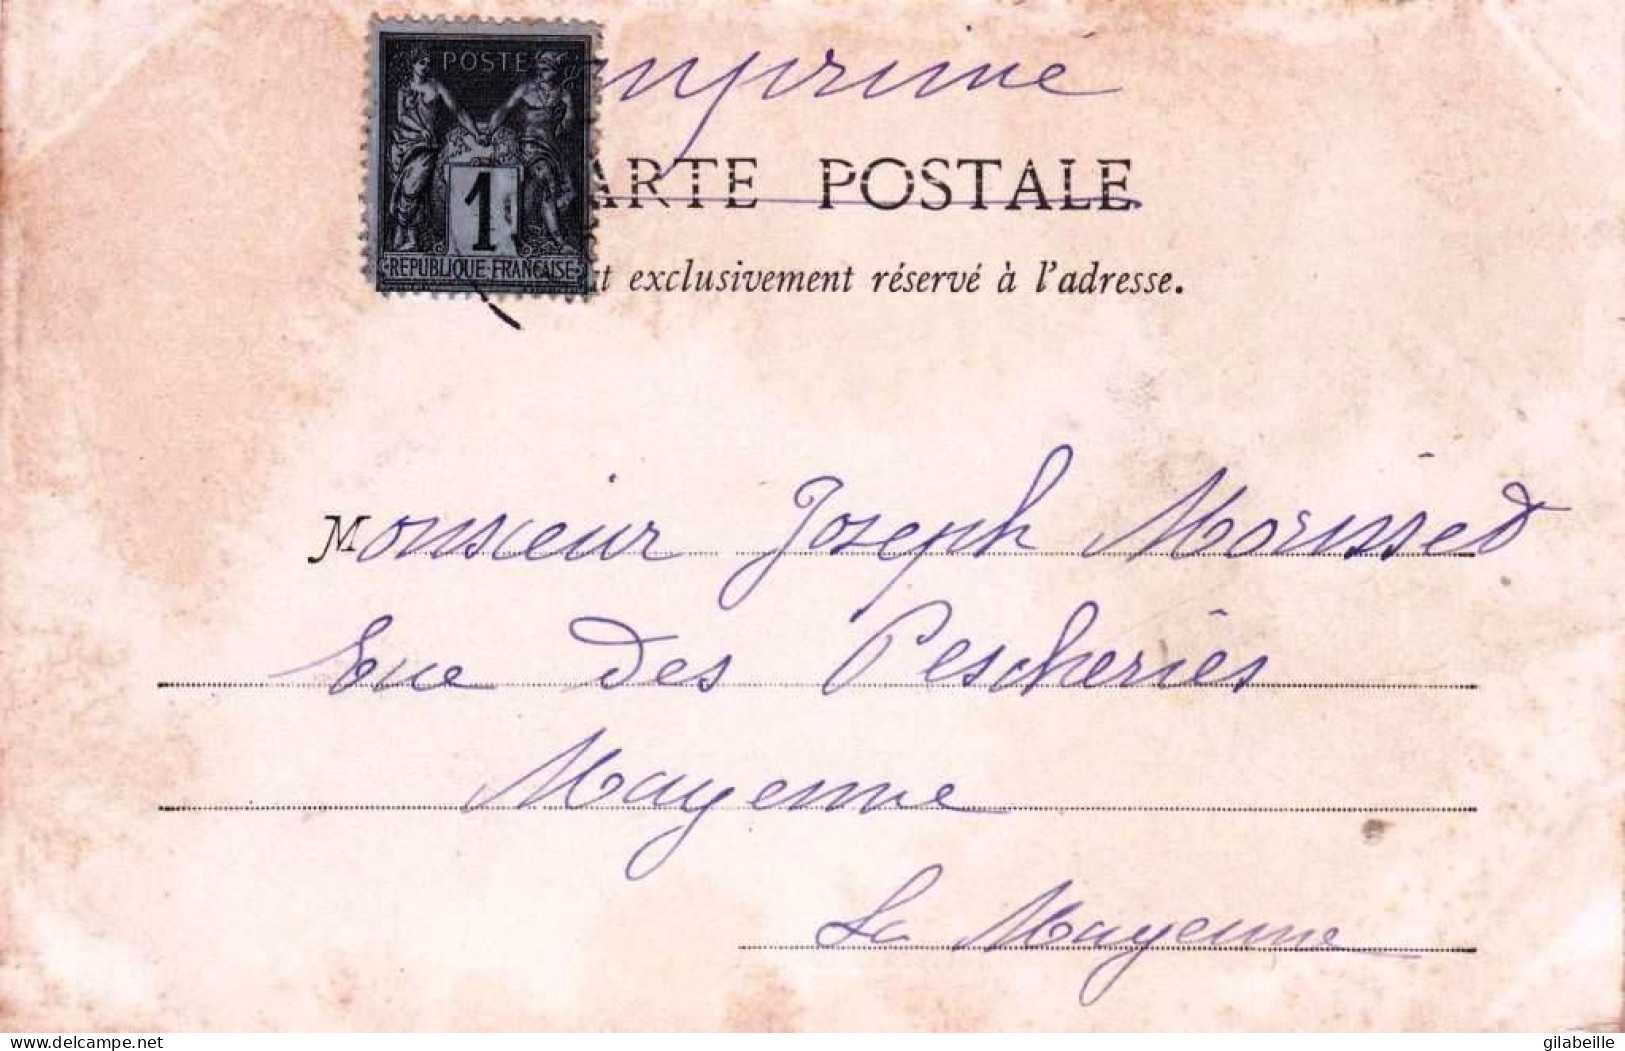 POSTE
1
REPUBLIQUE FRANÇAISE
mprimé
ARTE POSTALE
t exclusivement réservé à l'adresse.
Monsieur Joseph Morisset
Rue des Pescheries
Mayenne
La Mayenne
delcampe.net
gilabeille